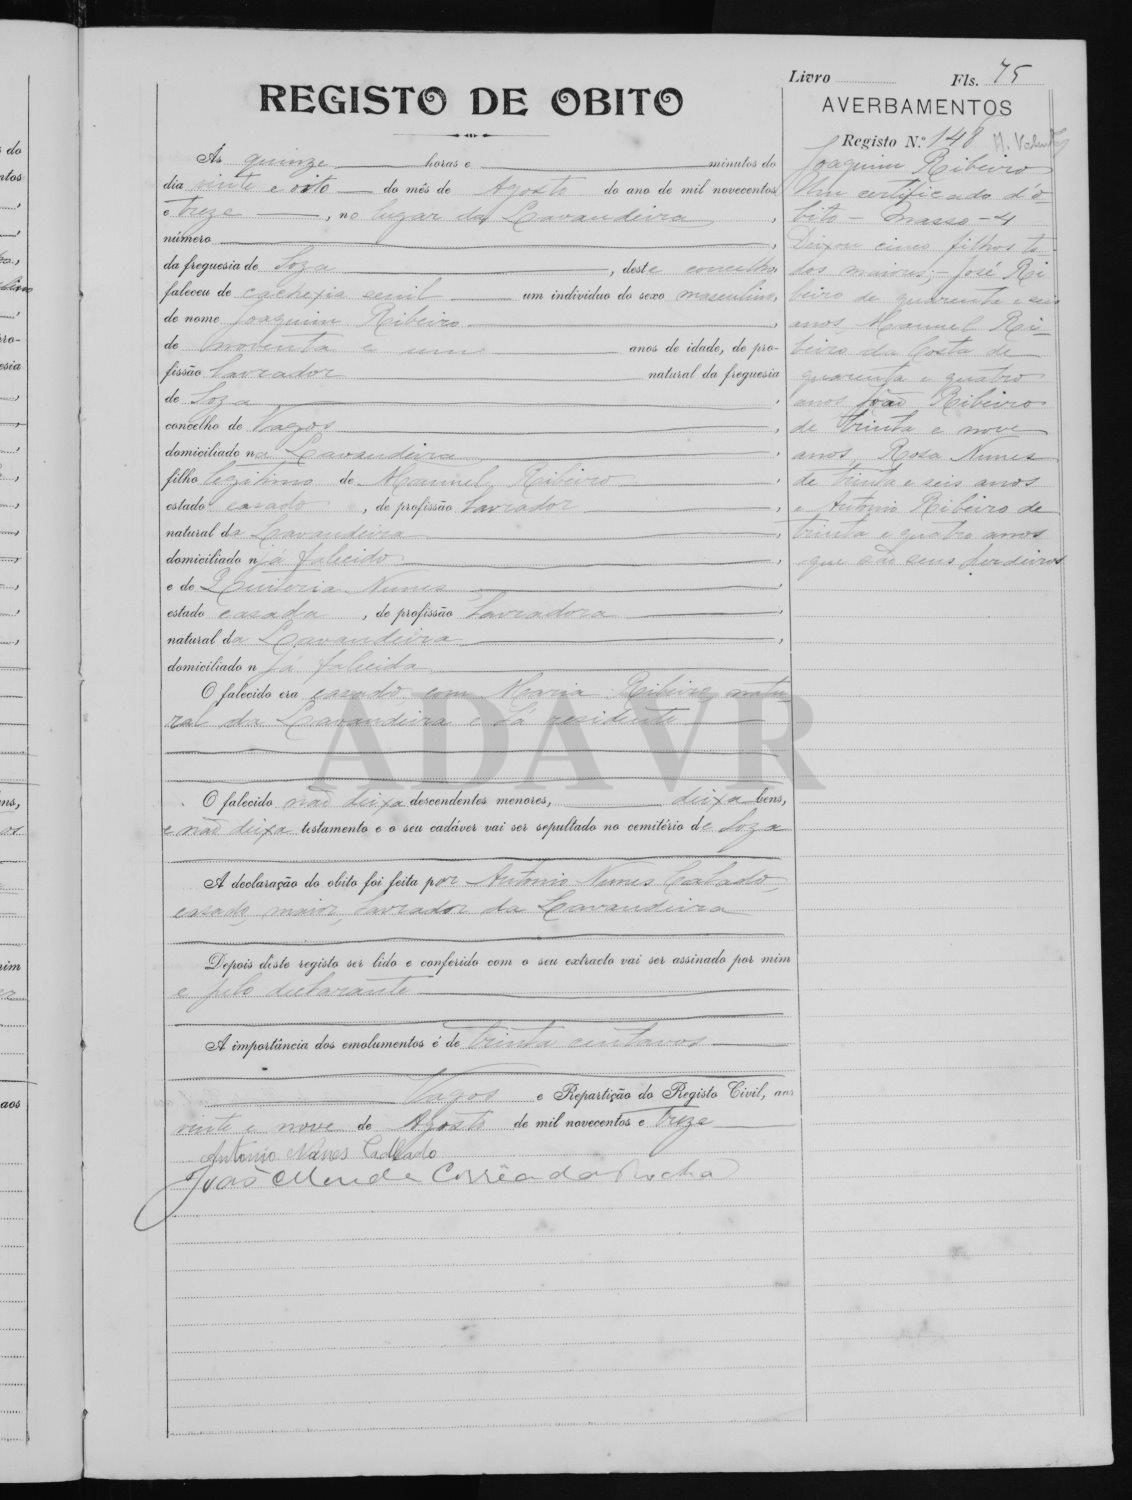 Livro Fls. 75
REGISTO DE OBITO
AVERBAMENTOS
Registo N.º 148
Às quinze horas e minutos do
dia vinte e oito do mês de Agosto do ano de mil novecentos
e treze, no lugar da Lavandeira,
número,
da freguesia de Soza, deste concelho
faleceu de cachexia senil um individuo do sexo masculino,
de nome Joaquim Ribeiro,
de noventa e um anos de idade, de pro-
fissão lavrador natural da freguesia
de Soza,
concelho de Vagos,
domiciliado na Lavandeira,
filho legitimo de Manuel Ribeiro,
estado casado, de profissão lavrador,
natural da Lavandeira,
domiciliado n já falecido,
e de Quiteria Nunes,
estado casada, de profissão lavradora,
natural da Lavandeira,
domiciliado n já falecida
O falecido era casado com Maria Ribeiro, natu-
ral da Lavandeira e lá residente
O falecido não deixa descendentes menores, deixa bens,
e não deixa testamento e o seu cadáver vai ser sepultado no cemitério de Soza
A declaração do obito foi feita por Antonio Nunes Calado,
casado, maior, lavrador da Lavandeira
Depois dêste registo ser lido e conferido com o seu extracto vai ser assinado por mim
e pelo declarante
A importância dos emolumentos é de trinta centavos
Vagos e Repartição do Registo Civil, aos
vinte e nove de Agosto de mil novecentos e treze
Antonio Nunes Callado
João Mendes Corrêa da Rocha
Joaquim Ribeiro
Um certificado d'ó-
bito - Masso - 4
Deixou cinco filhos to-
dos maiores; - José Ri-
beiro de quarenta e seis
anos, Manuel Ri-
beiro da Costa de
quarenta e quatro
anos João Ribeiro
de trinta e nove
anos, Rosa Nunes
de trinta e seis anos
e Antonio Ribeiro de
trinta e quatro anos
que são seus herdeiros
ADAVR